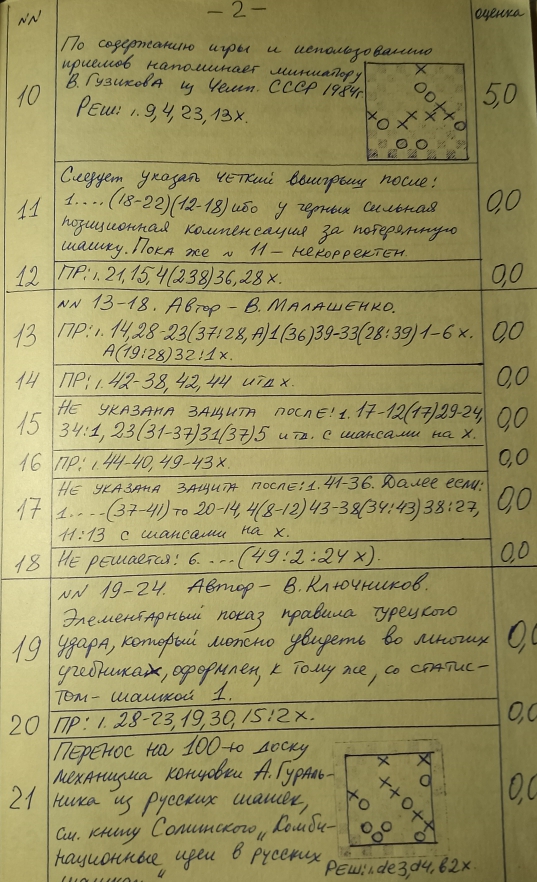 NN
— 2 —
оценка
10
По содержанию игры и использованию
приемов напоминает миниатюру
В. Гузикова из Чемп. СССР 1984г.
РЕШ: 1. 9, 4, 23, 13х.
5,0
11
Следует указать четкий выигрыш после:
1.... (18-22)(12-18) ибо у черных сильная
позиционная компенсация за потерянную
шашку. Пока же N 11 — некорректен.
0,0
12
ПР: 1. 21, 15, 4(238)36, 28х.
0,0
NN 13-18. Автор — В. МАЛАШЕНКО.
13
ПР: 1. 14, 28-23(37:28, А)1(36)39-33(28:39)1-6х.
А(19:28)32:1х.
0,0
14
ПР: 1. 42-38, 42, 44 итд х.
0,0
15
НЕ УКАЗАНА ЗАЩИТА ПОСЛЕ: 1. 17-12(17)29-24,
34:1, 23(31-37)31(37)5 итд. с шансами на х.
0,0
16
ПР: 1. 44-40, 49-43х.
0,0
17
НЕ УКАЗАНА ЗАЩИТА ПОСЛЕ: 1. 41-36. Далее если:
1.... (37-41) то 20-14, 4(8-12)43-38(34:43)38:27,
11:13 с шансами на х.
0,0
18
НЕ РЕШАЕТСЯ: 6. ... (49:2:24х).
0,0
NN 19-24. Автор — В. Ключников.
19
Элементарный показ правила турецкого
удара, который можно увидеть во многих
учебниках, оформлен, к тому же, со статис-
том — шашкой 1.
0,0
20
ПР: 1. 28-23, 19, 30, 15:2х.
0,0
21
Перенос на 100-ю доску
механизма концовки А. Гураль-
ника из русских шашек,
см. книгу Солинского „Комби-
национные идеи в русских
шашках"
РЕШ: 1. de3, d4, b2х.
0,0